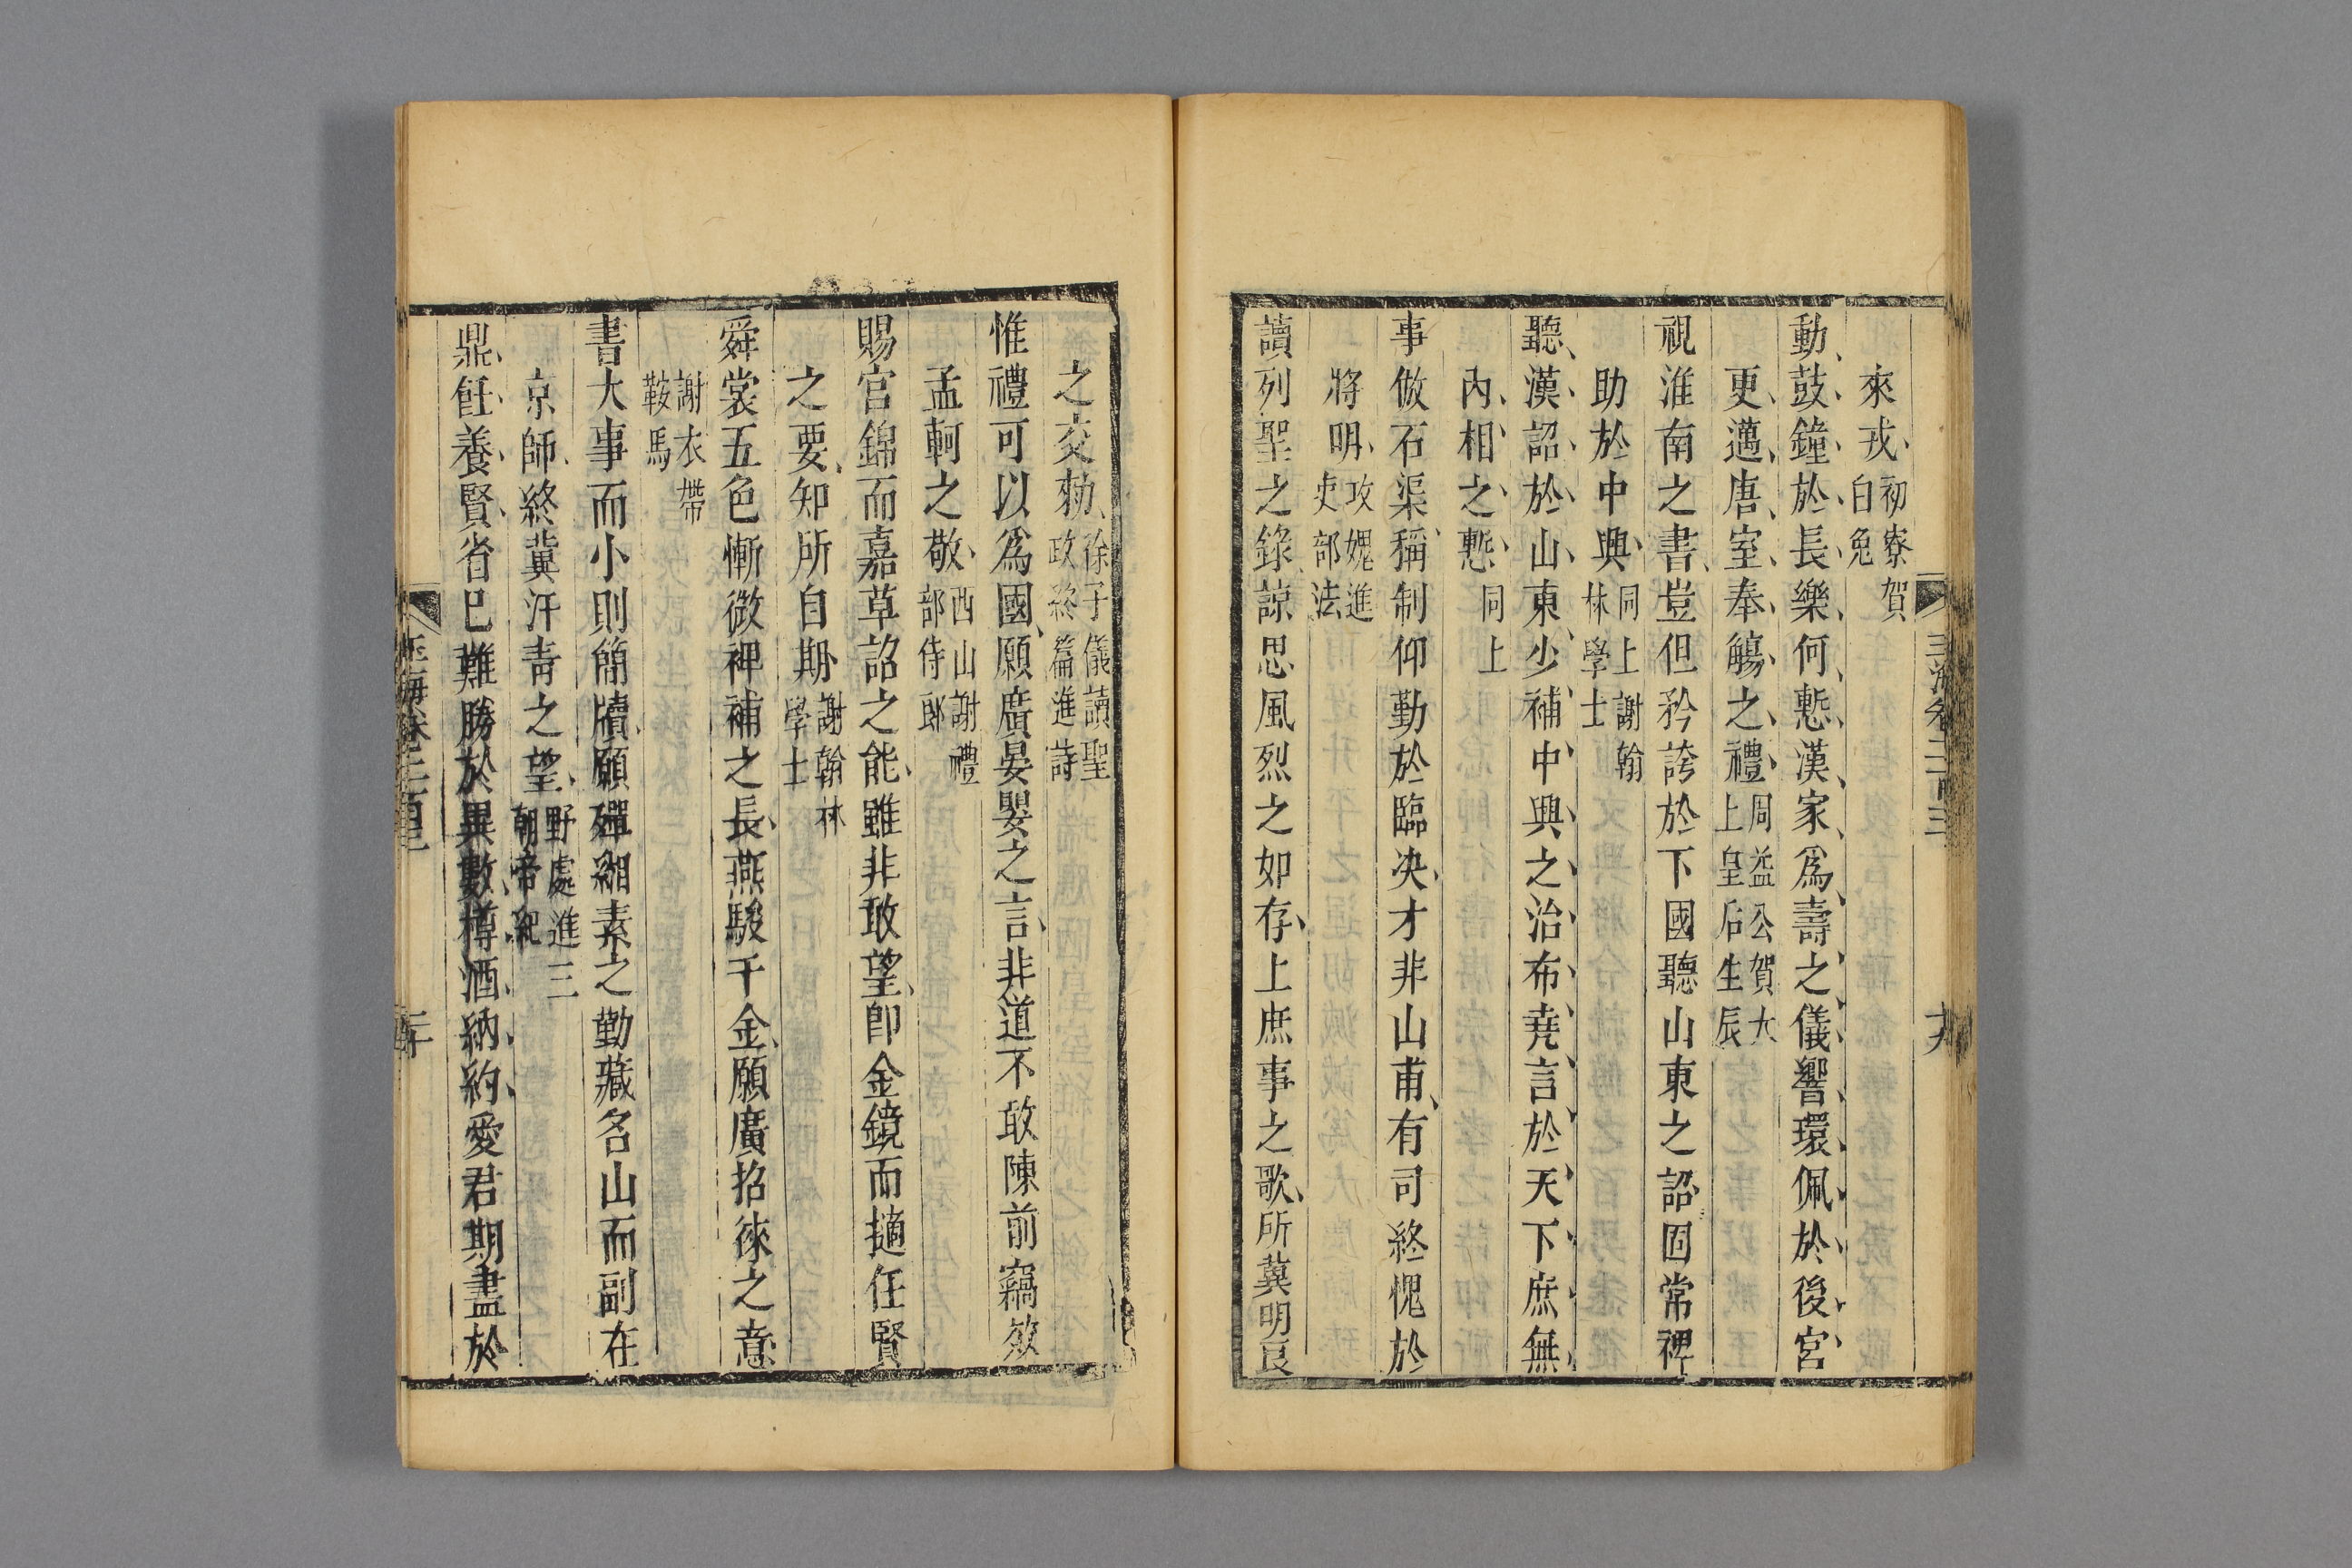 來戎初寮賀白兔
動鼓鐘於長樂何慙漢家爲壽之儀響環佩於後宮
更邁唐室奉觴之禮周益公賀大上皇后生辰
視淮南之書豈但矜誇於下國聽山東之詔固常裨
助於中興同上謝翰林學士
聽漢詔於山東少補中興之治布堯言於天下庶無
內相之慙同上
事倣石渠稱制仰勤於臨决才非山甫有司終愧於
將明攻媿進吏部法
讀列聖之錄諒思風烈之如存上庶事之歌所冀明良
之交勑徐子儀讀聖政終篇進詩
惟禮可以爲國願廣晏嬰之言非道不敢陳前竊效
孟軻之敬西山謝禮部侍郎
賜官錦而嘉草詔之能雖非敢望卽金鏡而擿任賢
之要知所自期謝翰林學士
舜裳五色慚微裨補之長燕駿千金願廣招徠之意
謝衣帶鞍馬
書大事而小則簡牘願殫緗素之勤藏名山而副在
京師終冀汗青之望野處進三朝帝紀
鼎飪養賢省已難勝於異數樽酒納約愛君期盡於